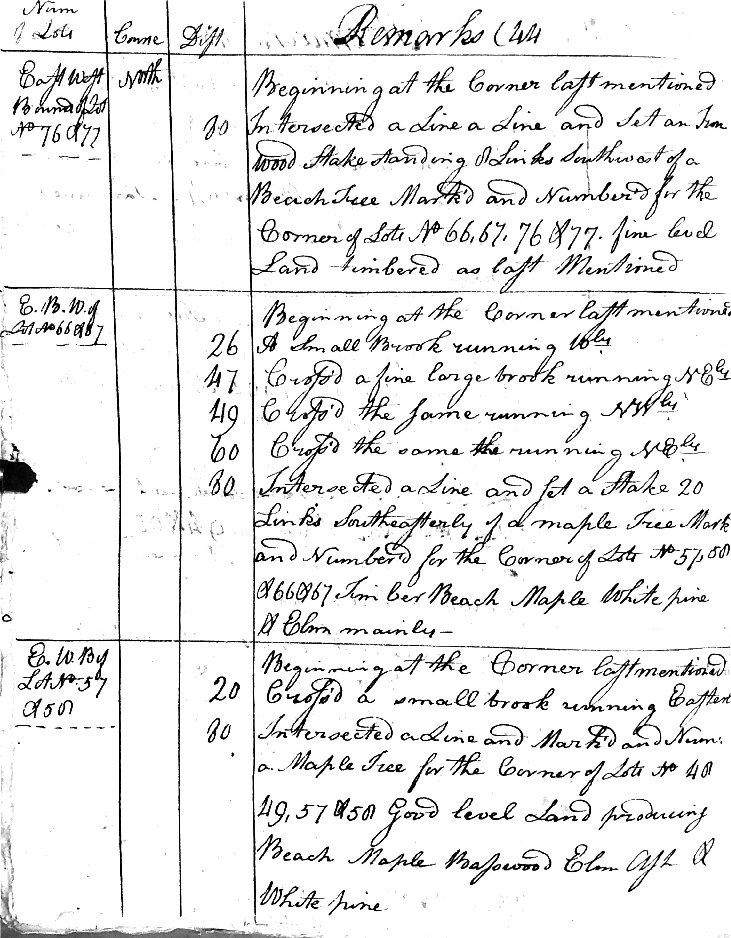 Num of Lots Course Dist Remarks (44
East West Bound of Lot No 76 & 77
North
Beginning at the Corner last mentioned
80 Intersected a Line a Line and Set an Iron
wood Stake standing 8 Links Southwest of a
Beach Tree Mark'd and Number'd for the
Corner of Lots No 66, 67, 76 & 77. fine level
Land timbered as last Mentioned
E. B. W. of Lot No 66 & 67
Beginning at the Corner last mentioned
26 A Small Brook running Wly
47 Cross'd a fine large brook running NEly
49 Cross'd the same running NWly
60 Cross'd the same the running NEly
80 Intersected a Line and set a Stake 20
Links Southeasterly of a maple Tree Mark
and Number'd for the Corner of Lots No 57, 58
& 66 & 67 Timber Beach Maple White pine
& Elm mainly—
E. W. B of Lot No 57 & 58
Beginning at the Corner last mentioned
20 Cross'd a small brook running Easterl
80 Intersected a Line and Mark'd and Num.
a Maple Tree for the Corner of Lots No 48
49, 57 & 58 Good level Land producing
Beach Maple Basswood Elm Ash &
White pine